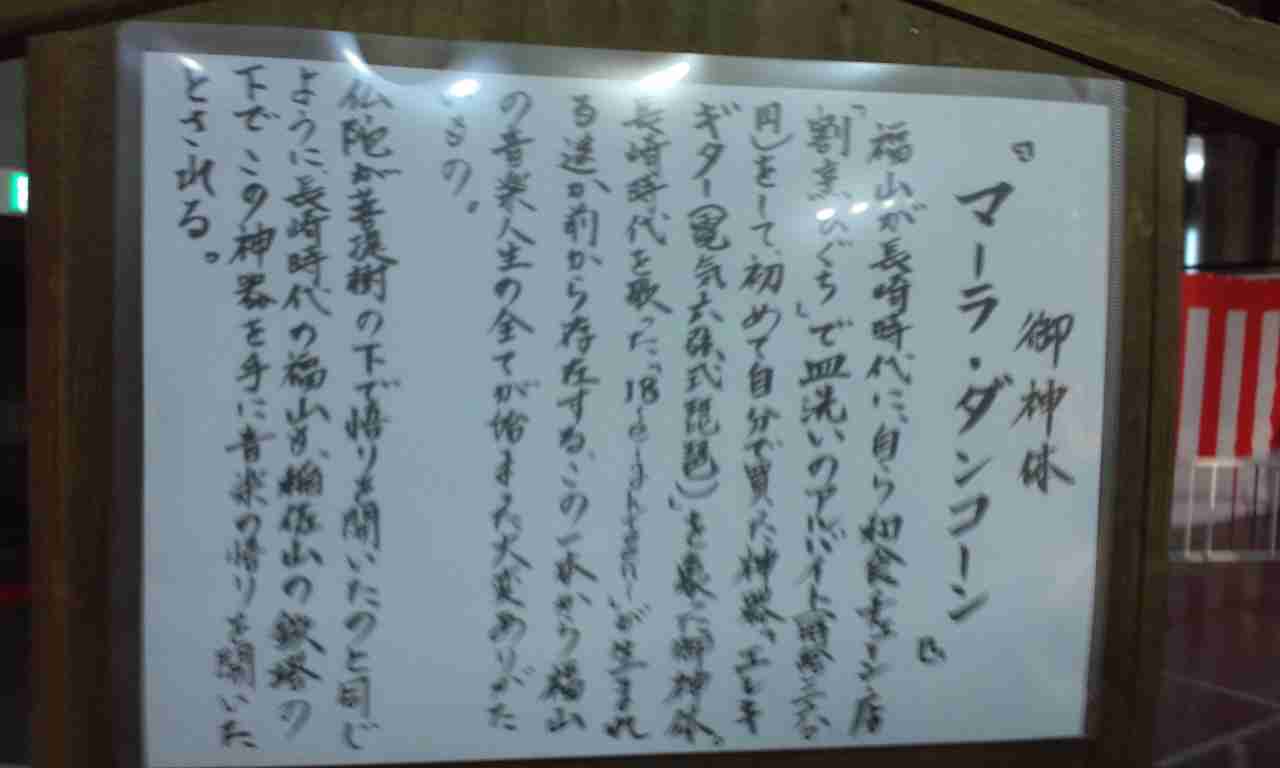 御神体
『マーラ・ダンコーン』
福山が長崎時代に、自ら和食チェーン店
「割烹ひぐち」で皿洗いのアルバイト(時給
円)をして、初めて自分で買った神器、エレキ
ギター(電気六弦式琵琶)」を象た御神体。
長崎時代を歌った「18 」が生まれ
る遥か前から存在する、この一本から福山
の音楽人生の全てが始まった大変ありがた
いもの。
仏陀が菩提樹の下で悟りを開いたのと同じ
ように、長崎時代の福山が、稲佐山の鉄塔の
下でこの神器を手に音楽の悟りを開いた
とされる。